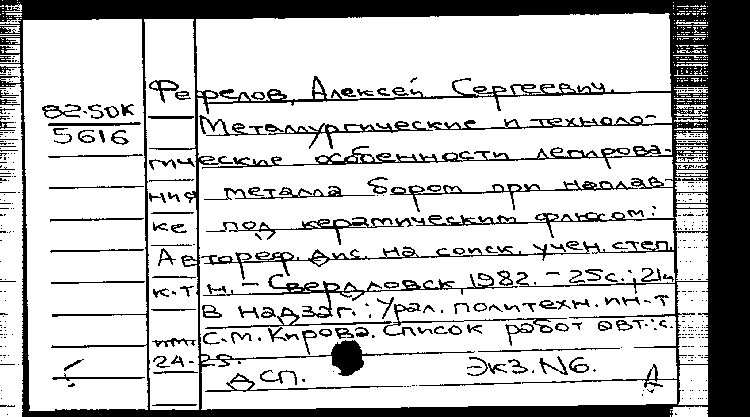 Фефелов, Алексей Сергеевич.
82-5ДК
5616
Металлургические и техноло-
гические особенности легирова-
ния металла бором при наплав-
ке под керамическим флюсом:
Автореф. дис. на соиск. учен. степ.
к.т.н. - Свердловск, 1982. - 25с.; 21см
В надзаг.: Урал. политехн. ин-т
им. С.М. Кирова. Список работ авт.: с.
24-25.
ДСП. Экз. N6.
Д